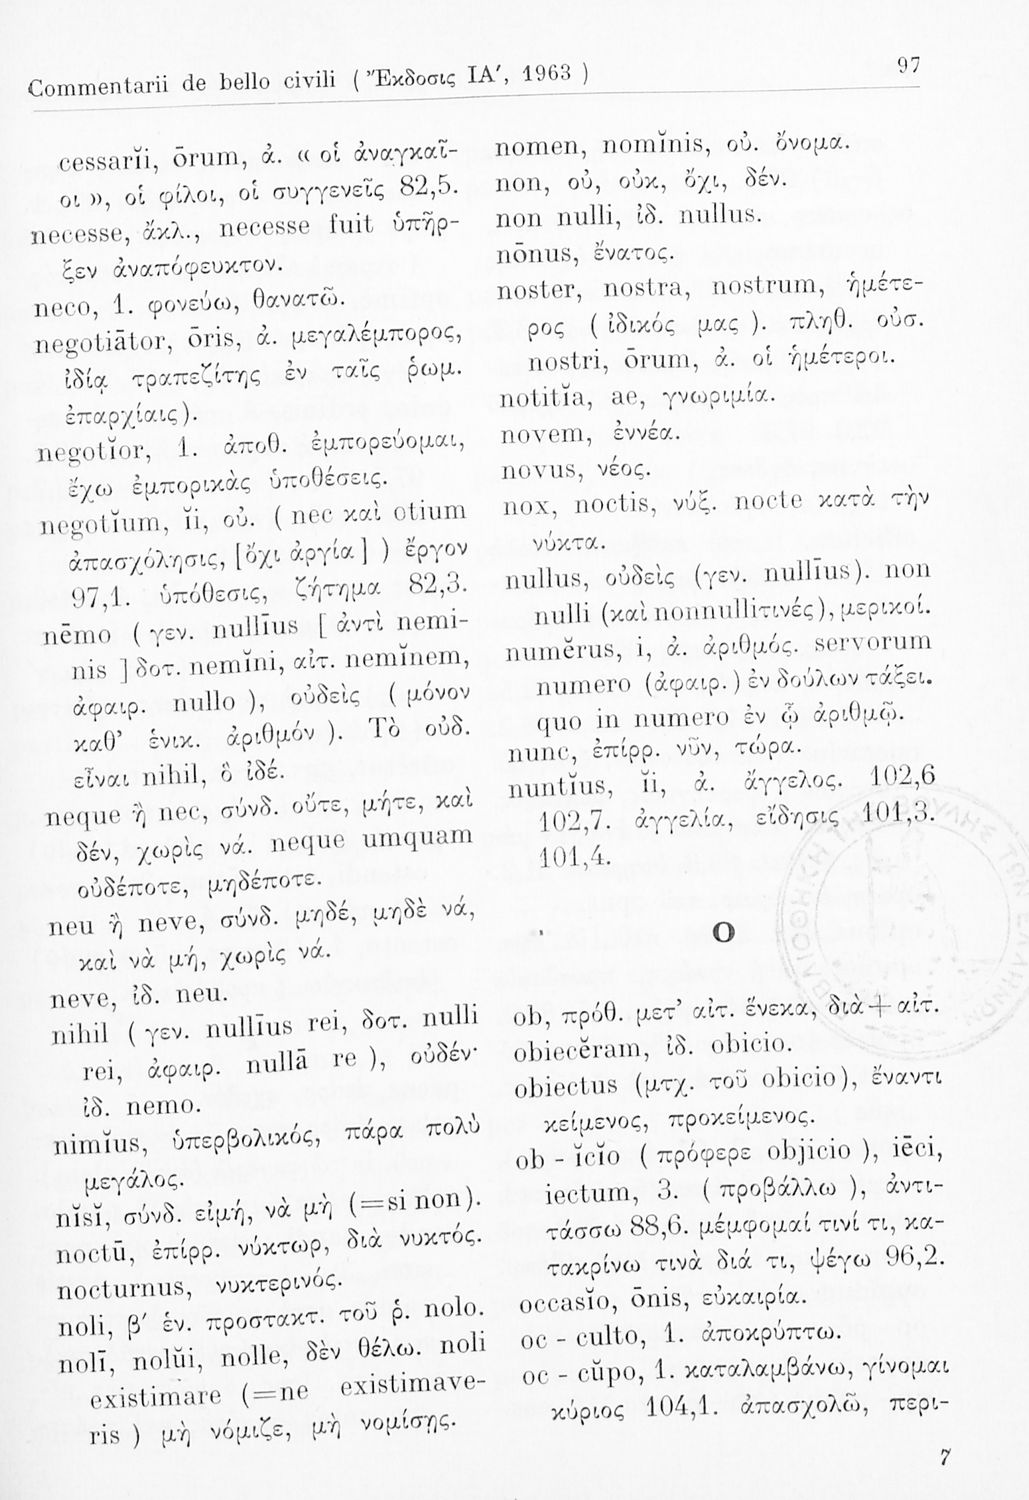 Commentarii de bello civili ( Ἔκδοσις ΙΑ′, 1963 )
97
cessarĭi, ōrum, ἀ. « οἱ ἀναγκαῖ-
οι », οἱ φίλοι, οἱ συγγενεῖς 82,5.
necesse, ἄκλ., necesse fuit ὑπῆρ-
ξεν ἀναπόφευκτον.
neco, 1. φονεύω, θανατῶ.
negotiātor, ōris, ἀ. μεγαλέμπορος,
ἰδίᾳ τραπεζίτης ἐν ταῖς ῥωμ.
ἐπαρχίαις).
negotĭor, 1. ἀποθ. ἐμπορεύομαι,
ἔχω ἐμπορικὰς ὑποθέσεις.
negotĭum, ĭi, οὐ. ( nec καὶ otium
ἀπασχόλησις, [ὄχι ἀργία] ) ἔργον
97,1. ὑπόθεσις, ζήτημα 82,3.
nēmo ( γεν. nullīus [ ἀντὶ nemi-
nis ] δοτ. nemĭni, αἰτ. nemĭnem,
ἀφαιρ. nullo ), οὐδεὶς ( μόνον
καθ’ ἑνικ. ἀριθμόν ). Τὸ οὐδ.
εἶναι nihil, ὃ ἰδέ.
neque ἢ nec, σύνδ. οὔτε, μήτε, καὶ
δέν, χωρὶς νά. neque umquam
οὐδέποτε, μηδέποτε.
neu ἢ neve, σύνδ. μηδέ, μηδὲ νά,
καὶ νὰ μή, χωρὶς νά.
neve, ἰδ. neu.
nihil ( γεν. nullīus rei, δοτ. nulli
rei, ἀφαιρ. nullā re ), οὐδέν·
ἰδ. nemo.
nimĭus, ὑπερβολικός, πάρα πολὺ
μεγάλος.
nĭsĭ, σύνδ. εἰμή, νὰ μὴ (=si non).
noctū, ἐπίρρ. νύκτωρ, διὰ νυκτός.
nocturnus, νυκτερινός.
noli, β′ ἑν. προστακτ. τοῦ ῥ. nolo.
nolī, nolŭi, nolle, δὲν θέλω. noli
existimare (=ne existimave-
ris ) μὴ νόμιζε, μὴ νομίσῃς.
nomen, nomĭnis, οὐ. ὄνομα.
non, οὐ, οὐκ, ὄχι, δέν.
non nulli, ἰδ. nullus.
nōnus, ἔνατος.
noster, nostra, nostrum, ἡμέτε-
ρος ( ἰδικός μας ). πληθ. οὐσ.
nostri, ōrum, ἀ. οἱ ἡμέτεροι.
notitĭa, ae, γνωριμία.
novem, ἐννέα.
novus, νέος.
nox, noctis, νύξ. nocte κατὰ τὴν
νύκτα.
nullus, οὐδεὶς (γεν. nullīus). non
nulli (καὶ nonnulli τινές), μερικοί.
numĕrus, i, ἀ. ἀριθμός. servorum
numero (ἀφαιρ. ) ἐν δούλων τάξει.
quo in numero ἐν ᾧ ἀριθμῷ.
nunc, ἐπίρρ. νῦν, τώρα.
nuntĭus, ĭi, ἀ. ἄγγελος. 102,6
102,7. ἀγγελία, εἴδησις 101,3.
101,4.
O
ob, πρόθ. μετ’ αἰτ. ἕνεκα, διὰ + αἰτ.
obiecĕram, ἰδ. obicio.
obiectus (μτχ. τοῦ obicio), ἔναντι
κείμενος, προκείμενος.
ob - ĭcĭo ( πρόφερε objicio ), iēci,
iectum, 3. ( προβάλλω ), ἀντι-
τάσσω 88,6. μέμφομαί τινί τι, κα-
τακρίνω τινὰ διά τι, ψέγω 96,2.
occasĭo, ōnis, εὐκαιρία.
oc - culto, 1. ἀποκρύπτω.
oc - cŭpo, 1. καταλαμβάνω, γίνομαι
κύριος 104,1. ἀπασχολῶ, περι-
7
ΒΙΒΛΙΟΘΗΚΗ ΤΗΣ ΒΟΥΛΗΣ ΤΩΝ ΕΛΛΗΝΩΝ